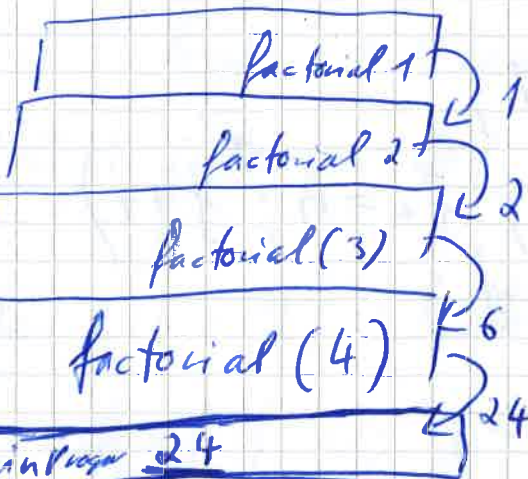 factorial 1
1
factorial 2
2
factorial (3)
6
factorial (4)
24
24